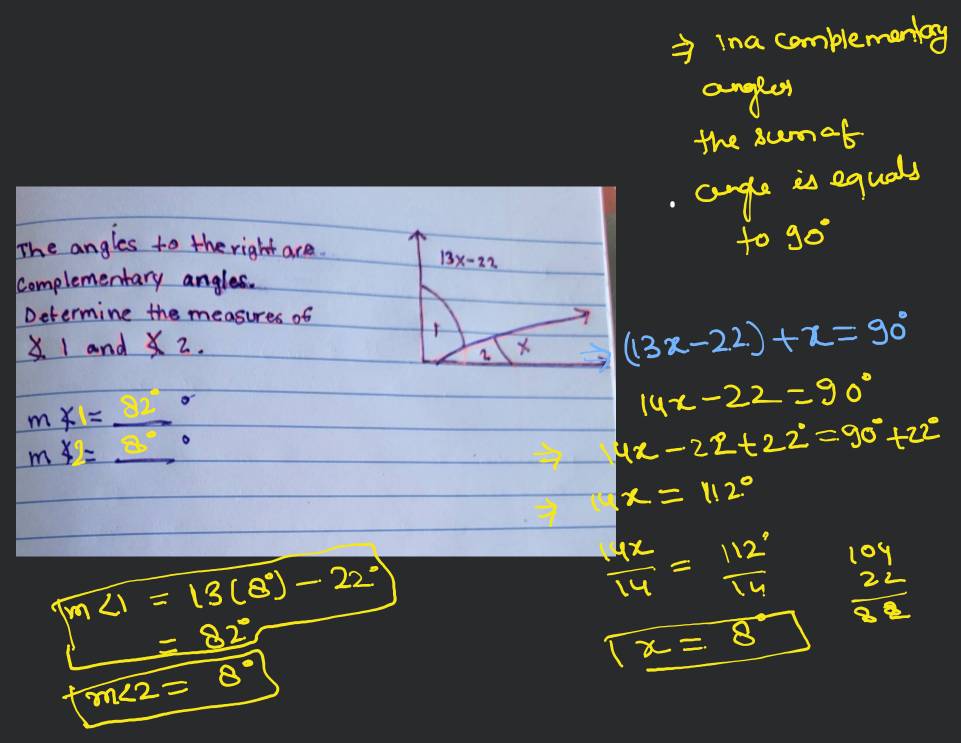 ⇒ in a complementary
angles
the sum of
angle is equals
to 90°
The angles to the right are
Complementary angles.
Determine the measures of
∡ 1 and ∡ 2.
m ∡1= 82° °
m ∡2= 8° °
13x-22
1
2
x
⇒ (13x-22)+x=90°
14x-22=90°
⇒ 14x-22+22°=90°+22°
⇒ 14x = 112°
14x/14 = 112°/14
x = 8°
104
22
82
m<1 = 13(8°)-22°
= 82°
m<2= 8°